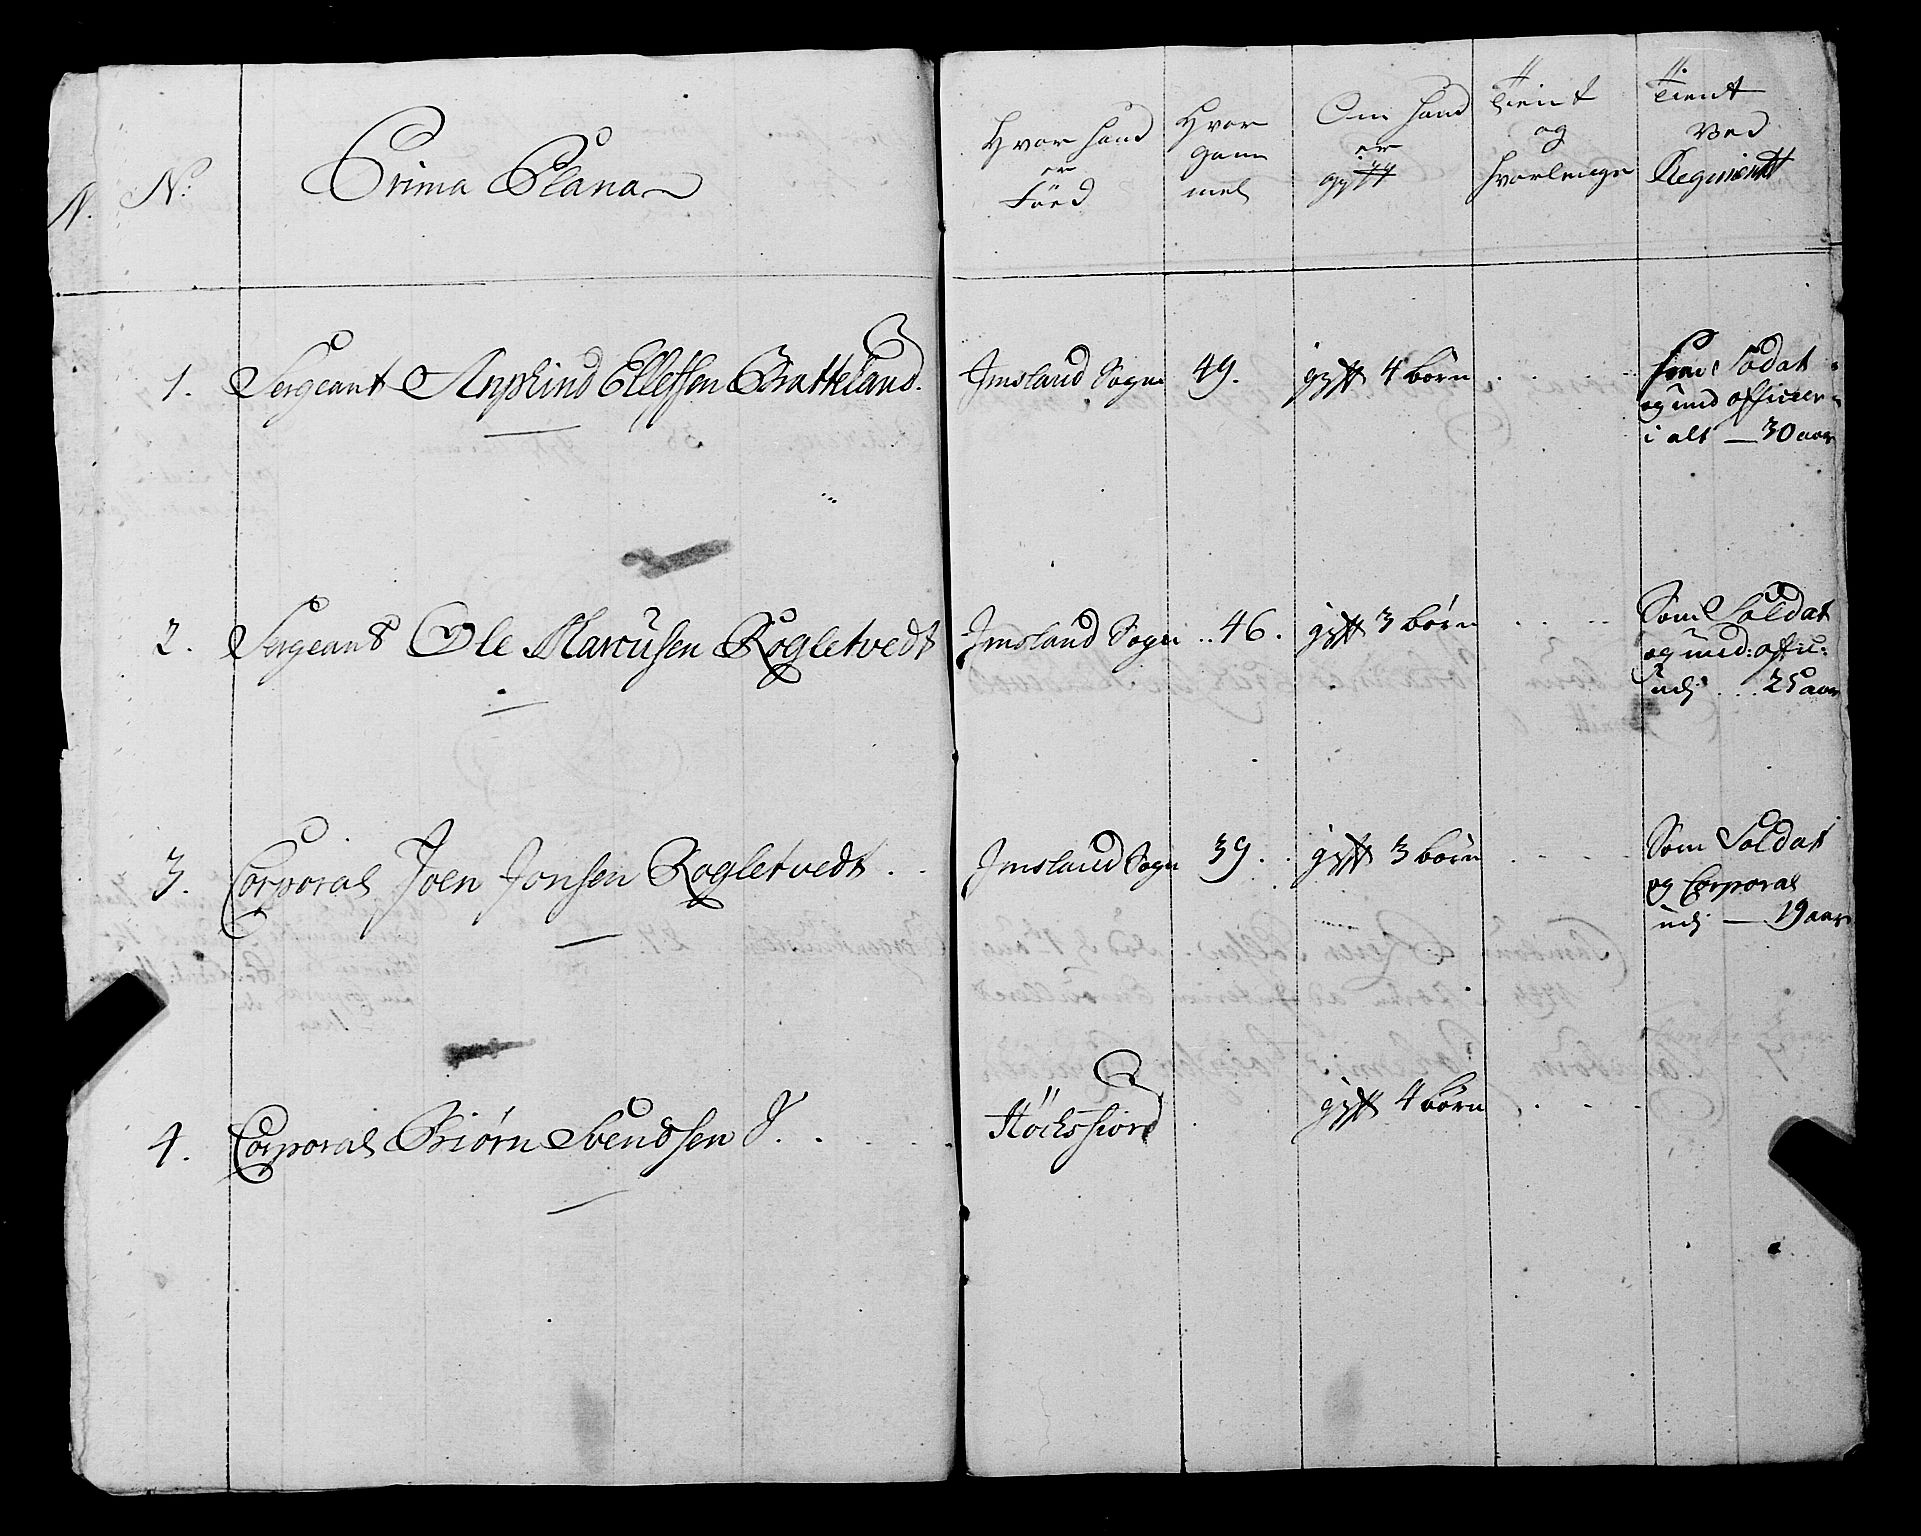 N. No Prima Plana
Hvor hand
er
Föed
Hvor
gam
mel
Om hand
er
gyfft
Tient
og
hvorlenge
Tient
Ved
Regimentt
1. Sergeant Ellefsen Bratteland. Jmsland Sogn 49. gift 4 börn
Som Sodat
og und officeer
i alt — 30 aar
2. Sergeant Ole Marcusen Rogletvedt Jmsland Sogn 46. gift 3 börn
Som Soldat
og und: offic:
udj 25 aar
3. Corporal Joen Jonsen Rogletvedt Jmsland Sogn 39. gift 3 börn
Som Soldat
og Corporal
udj — 19 aar
4. Corporal Biörn Svendsen gift 4 börn